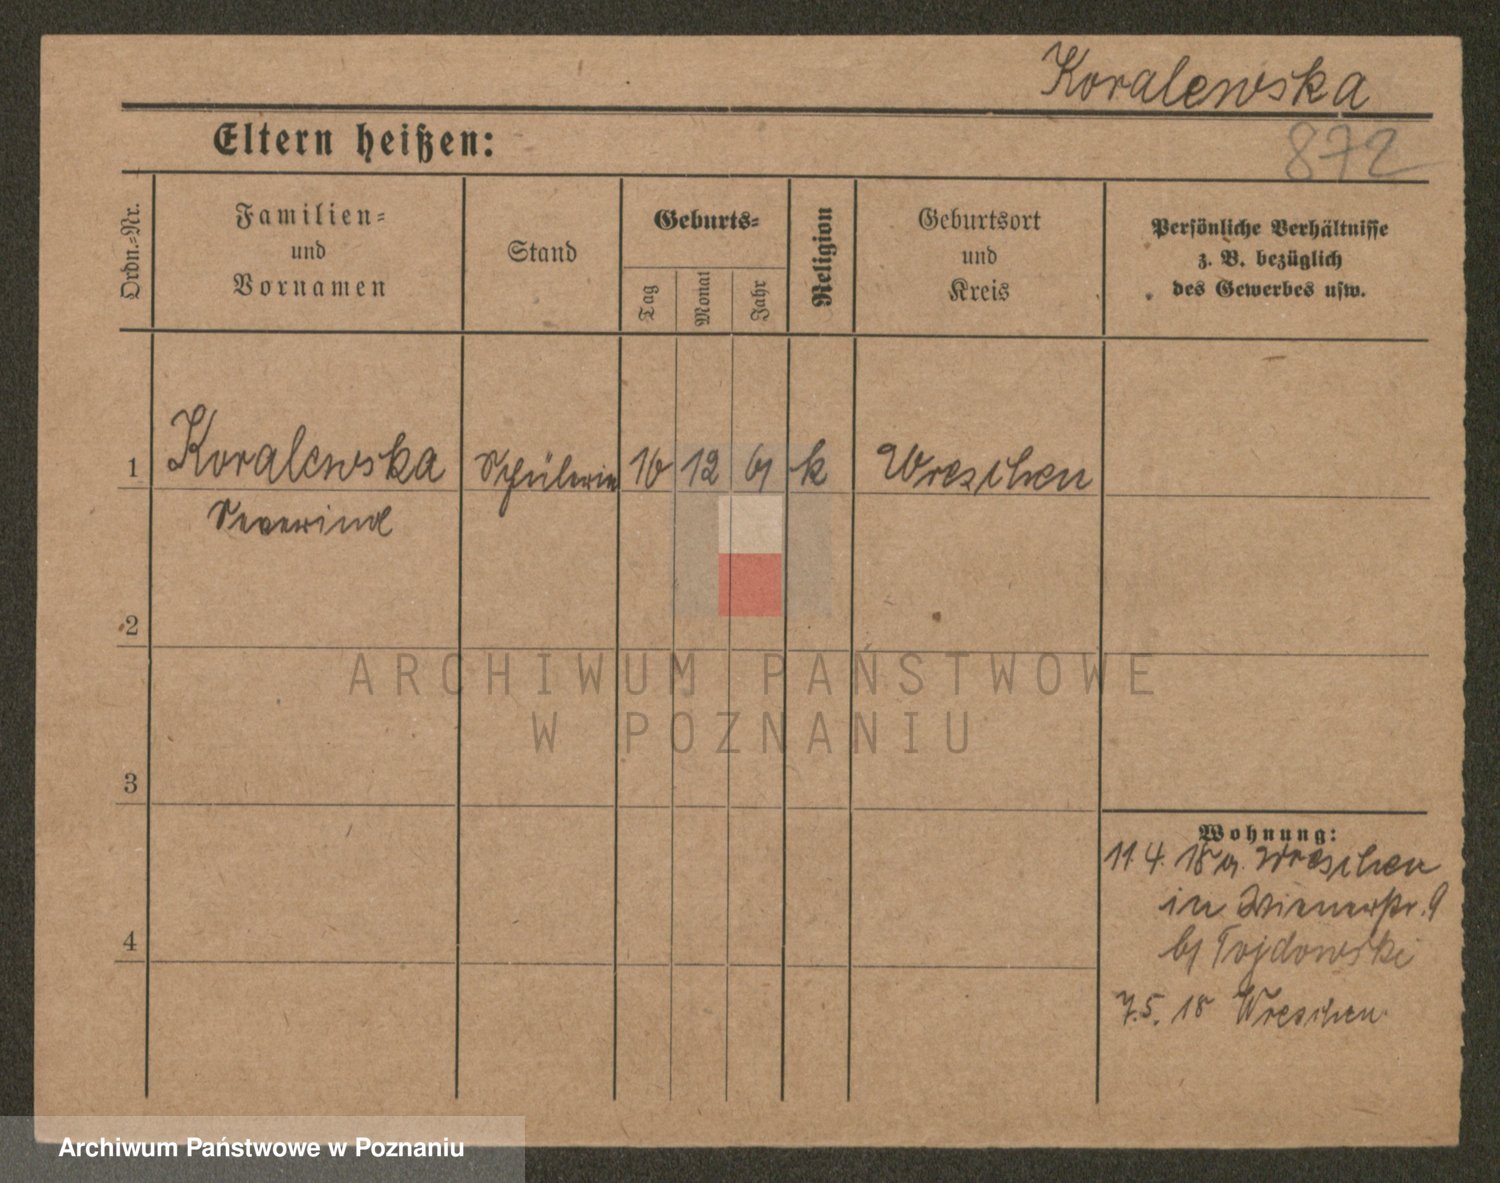 Koralewska
Eltern heißen:
872
Ordn.=Nr.
Familien=
und
Vornamen
Stand
Geburts=
Tag
Monat
Jahr
Religion
Geburtsort
und
Kreis
Persönliche Verhältnisse
z. B. bezüglich
des Gewerbes usw.
1
Koralewska Schülerin 16 12 01 k Wreschen
Severina
2
ARCHIWUM PAŃSTWOWE
W POZNANIU
3
Wohnung:
11 4. 18 a. Wreschen
in Wienerstr. 9
4
b/ Tojdowski
7.5. 18 Wreschen
Archiwum Państwowe w Poznaniu